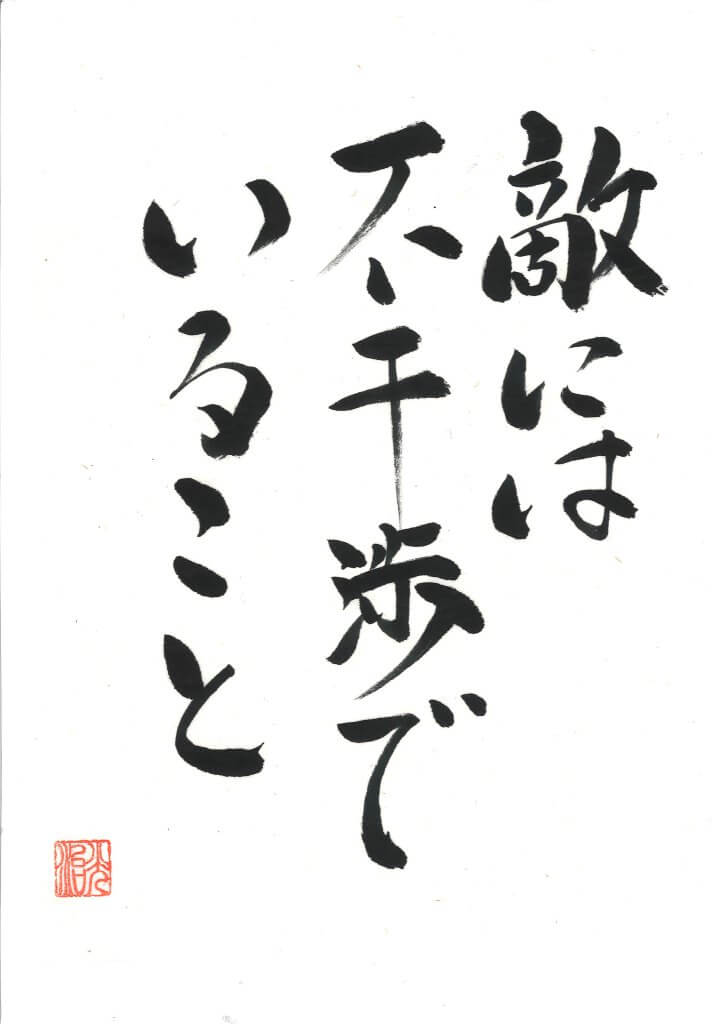 敵には
不干渉で
いること